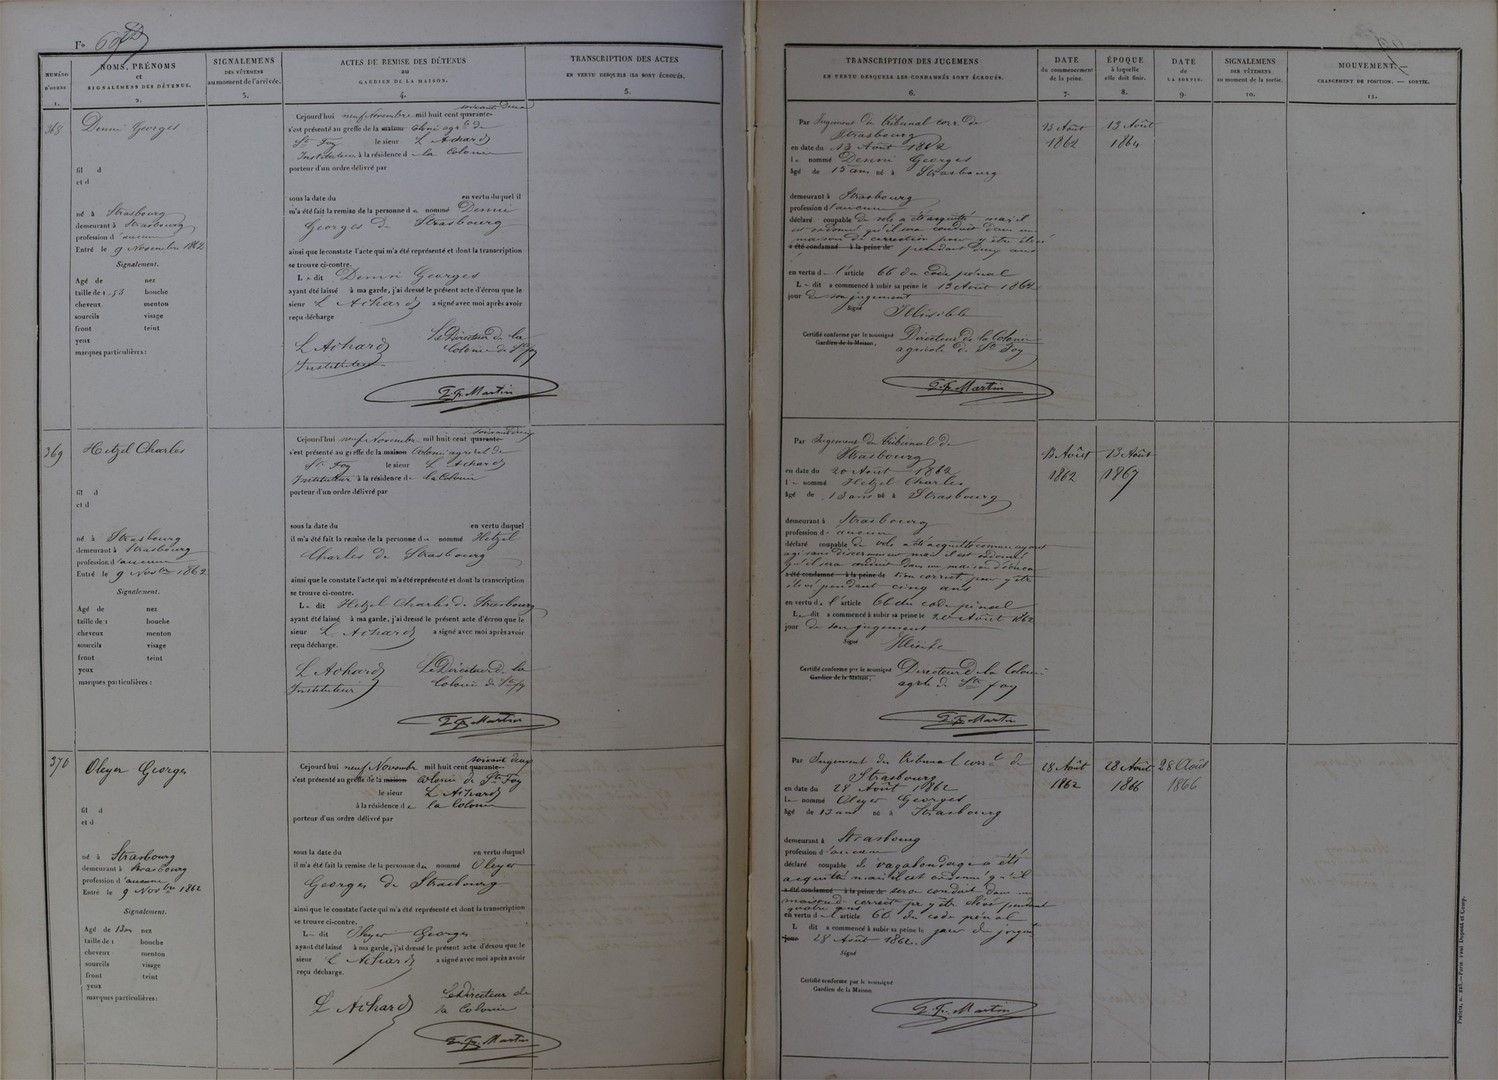 F°
NUMÉRO D'ORDRE
1.
NOMS, PRÉNOMS
et
SIGNALEMENS DES DÉTENUS.
2.
SIGNALEMENS
DES VÊTEMENS
au moment de l'arrivée.
3.
ACTES DE REMISE DES DÉTENUS
au
GARDIEN DE LA MAISON.
4.
TRANSCRIPTION DES ACTES
EN VERTU DESQUELS ILS SONT ÉCROUÉS.
5.
368
Georges
fil d
et d
né à Strasbourg
demeurant à Strasbourg
profession d'aucune
Entré le 9 Novembre 1862
Signalement.
Agé de nez
taille de 1,53 bouche
cheveux menton
sourcils visage
front teint
yeux
marques particulières:
soixante deux
Cejourd'hui neuf Novembre mil huit cent quarante-
s'est présenté au greffe de la maison Colonie agr le de
Ste Foy le sieur L Achard
Instituteur à la résidence d la Colonie
porteur d'un ordre délivré par
sous la date du en vertu duquel il
m'a été fait la remise de la personne d nommé
Georges de Strasbourg
ainsi que le constate l'acte qui m'a été représenté et dont la transcription
se trouve ci-contre.
Le dit Georges
ayant été laissé à ma garde, j'ai dressé le présent acte d'écrou que le
sieur L Achard a signé avec moi après avoir
reçu décharge
L Achard Le Directeur de la
Instituteur Colonie de Ste Foy
Martin
369
Hetzel Charles
fil d
et d
né à Strasbourg
demeurant à Strasbourg
profession d'aucune
Entré le 9 Novbre 1862
Signalement.
Agé de nez
taille de 1 bouche
cheveux menton
sourcils visage
front teint
yeux
marques particulières :
soixante deux
Cejourd'hui neuf Novembre mil huit cent quarante-
s'est présenté au greffe de la maison Colonie agricol de
Ste Foy le sieur L Achard
Instituteur à la résidence de la Colonie
porteur d'un ordre délivré par
sous la date du en vertu duquel
il m'a été fait la remise de la personne d nommé Hetzel
Charles de Strasbourg
ainsi que le constate l'acte qui m'a été représenté et dont la transcription
se trouve ci-contre.
Le dit Hetzel Charles de Strasbourg
ayant été laissé à ma garde, j'ai dressé le présent acte d'écrou que le
sieur L Achard a signé avec moi après avoir
reçu décharge.
L Achard Le Directeur de la
Instituteur Colonie de Ste foy
Martin
370
Oleyer Georges
fil d
et d
né à Strasbourg
demeurant à Strasbourg
profession d'aucune
Entré le 9 Novbre 1862
Signalement.
Agé de 13 an nez
taille de 1 bouche
cheveux menton
sourcils visage
front teint
yeux
marques particulières:
soixante deux
Cejourd'hui neuf Novembre mil huit cent quarante-
s'est présenté au greffe de la maison Colonie de Ste Foy
le sieur L Achard
à la résidence de la Colonie
porteur d'un ordre délivré par
sous la date du en vertu duquel
il m'a été fait la remise de la personne de nommé Oleyer
Georges de Strasbourg
ainsi que le constate l'acte qui m'a été représenté et dont la transcription
se trouve ci-contre.
Le dit Oleyer Georges
ayant été laissé à ma garde, j'ai dressé le présent acte d'écrou que le
sieur L Achard a signé avec moi après avoir
reçu décharge.
L Achard Le Directeur de
la Colonie
Martin
TRANSCRIPTION DES JUGEMENS
EN VERTU DESQUELS LES CONDAMNÉS SONT ÉCROUÉS.
6.
DATE
du commencement
de la peine.
7.
ÉPOQUE
à laquelle
elle doit finir.
8.
DATE
de
LA SORTIE.
9.
SIGNALEMENS
DES VÊTEMENS
au moment de la sortie.
10.
MOUVEMENT.
CHANGEMENT DE POSITION. — SORTIE.
11.
Par Jugement du tribunal corr. de
Strasbourg
en date du 13 Août 1862
le nommé Georges
âgé de 13 ans né à Strasbourg
demeurant à Strasbourg
profession d'aucune
déclaré coupable de vols a été acquitté mais il
est ordonné qu'il sera conduit dans une
maison de correction pour y être élevé
a été condamné à la peine de pendant deux ans
en vertu de l'article 66 du code pénal
Le dit a commencé à subir sa peine le 13 Août 1862
jour de son jugement
Signé Illisible
Certifié conforme par le soussigné Directeur de la Colonie
Gardien de la Maison. agricole de Ste Foy
Martin
13 Août 1862
13 Août 1864
Par Jugement du tribunal de
Strasbourg
en date du 20 Août 1862
le nommé Hetzel Charles
âgé de 13 ans né à Strasbourg
demeurant à Strasbourg
profession d' aucune
déclaré coupable de vols a été acquitté comme ayant
agi sans discernement mais il est ordonné
qu'il sera conduit dans une maison
a été condamné à la peine de correct. pour y être
élevé pendant cinq ans
en vertu de l'article 66 du code pénal
Le dit a commencé à subir sa peine le 20 Août 1862
jour de son jugement
Signé
Certifié conforme par le soussigné Directeur de la Colonie
Gardien de la Maison. agrle de Ste foy
Martin
13 Août 1862
13 Août 1867
Par Jugement du Tribunal corr.l de
Strasbourg
en date du 28 Août 1862
le nommé Oleyer Georges
âgé de 13 ans né à Strasbourg
demeurant à Strasbourg
profession d'aucune
déclaré coupable de vagabondage a été
acquitté mais il est ordonné qu'il
a été condamné à la peine de sera conduit dans une
maison de correct pr y être élevé pendant
quatre ans
en vertu de l'article 66 du code pénal
L dit a commencé à subir sa peine le jour du jugmt
jour 28 Août 1862.
Signé
Certifié conforme par le soussigné
Gardien de la Maison
Martin
28 Août 1862
28 Août 1866
28 Août 1866
Paris. Paul Dupont et Comp.